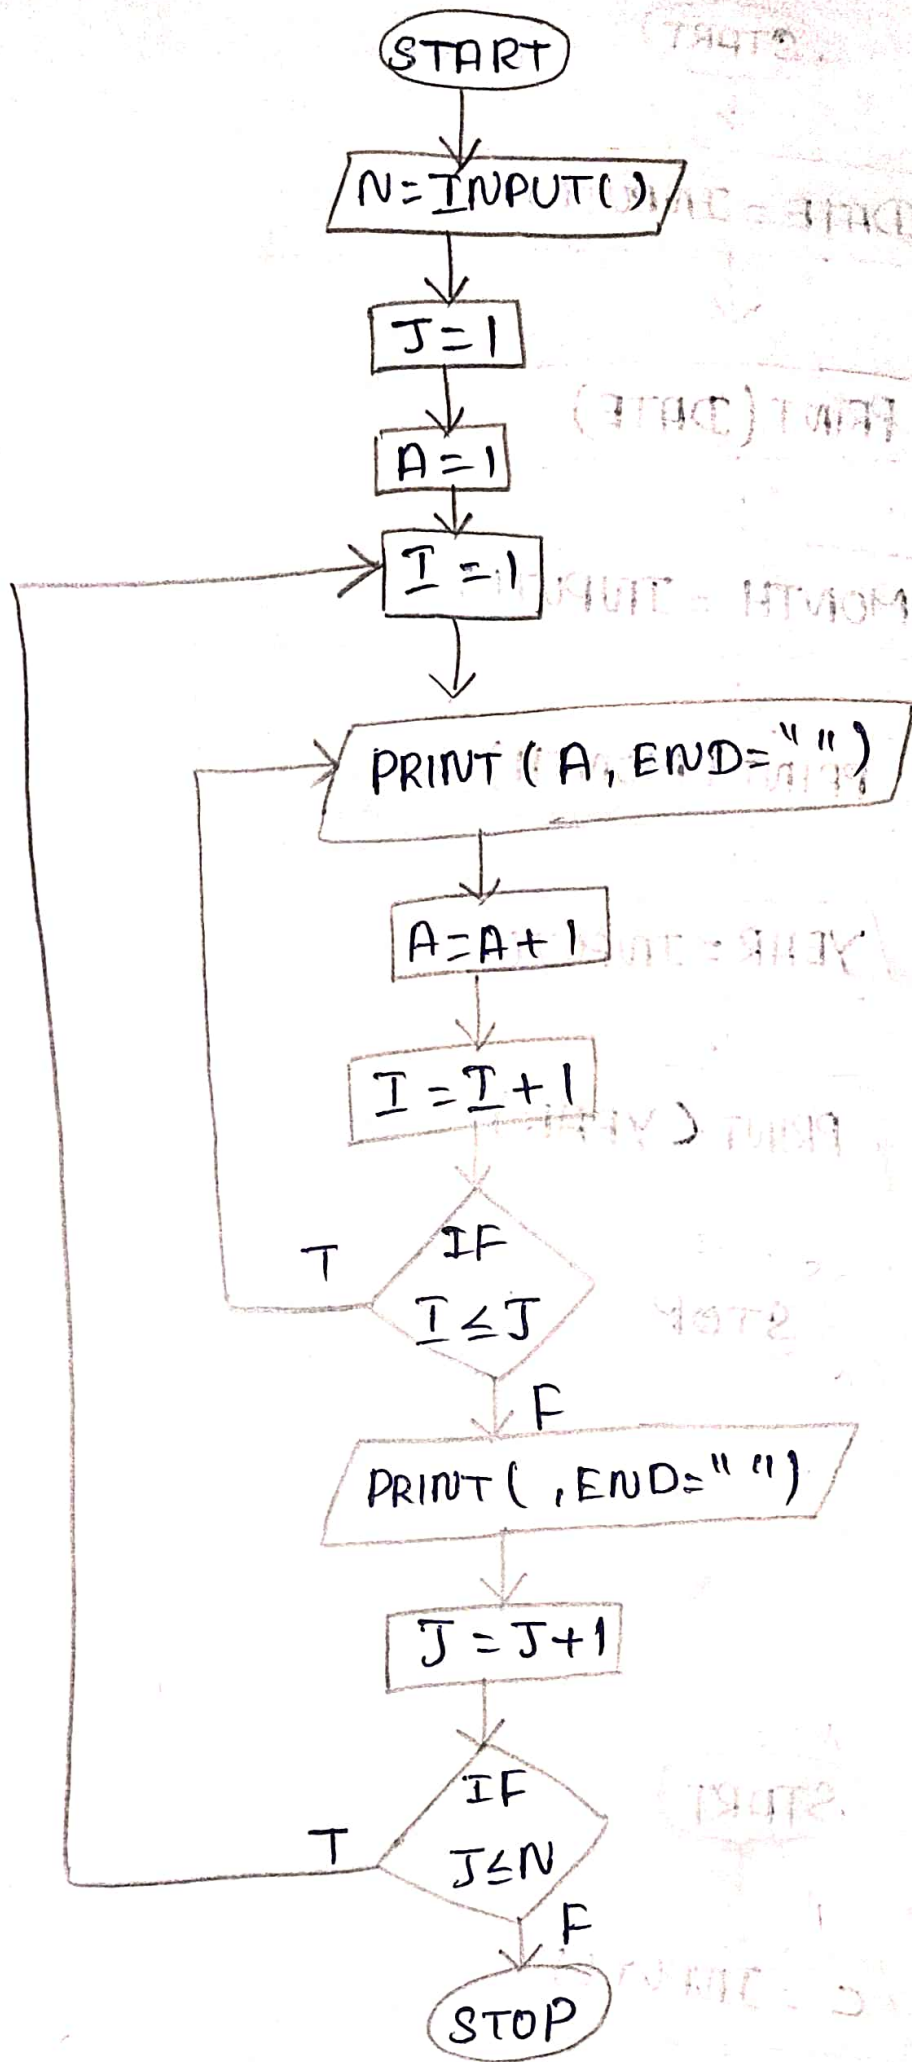 START
N=INPUT()
J=1
A=1
I=1
PRINT (A, END=" ")
A=A+1
I=I+1
IF
I≤J
T
F
PRINT( ,END=" ")
J=J+1
IF
J≤N
T
F
STOP